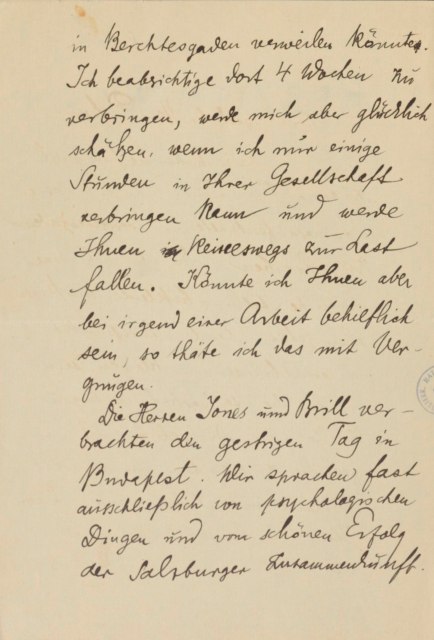 in Berchtesgaden verweilen könnten.
Ich beabsichtige dort 4 Wochen zu
verbringen, werde mich aber glücklich
schätzen, wenn ich nur einige
Stunden in Ihrer Gesellschaft
verbringen kann und werde
Ihnen keineswegs zur Last
fallen. Könnte ich Ihnen aber
bei irgend einer Arbeit behilflich
sein, so thäte ich das mit Ver-
gnügen.
Die Herren Jones und Brill ver-
brachten den gestrigen Tag in
Budapest. Wir sprachen fast
ausschließlich von psychologischen
Dingen und vom schönen Erfolg
der Salzburger Zusammenkunft.